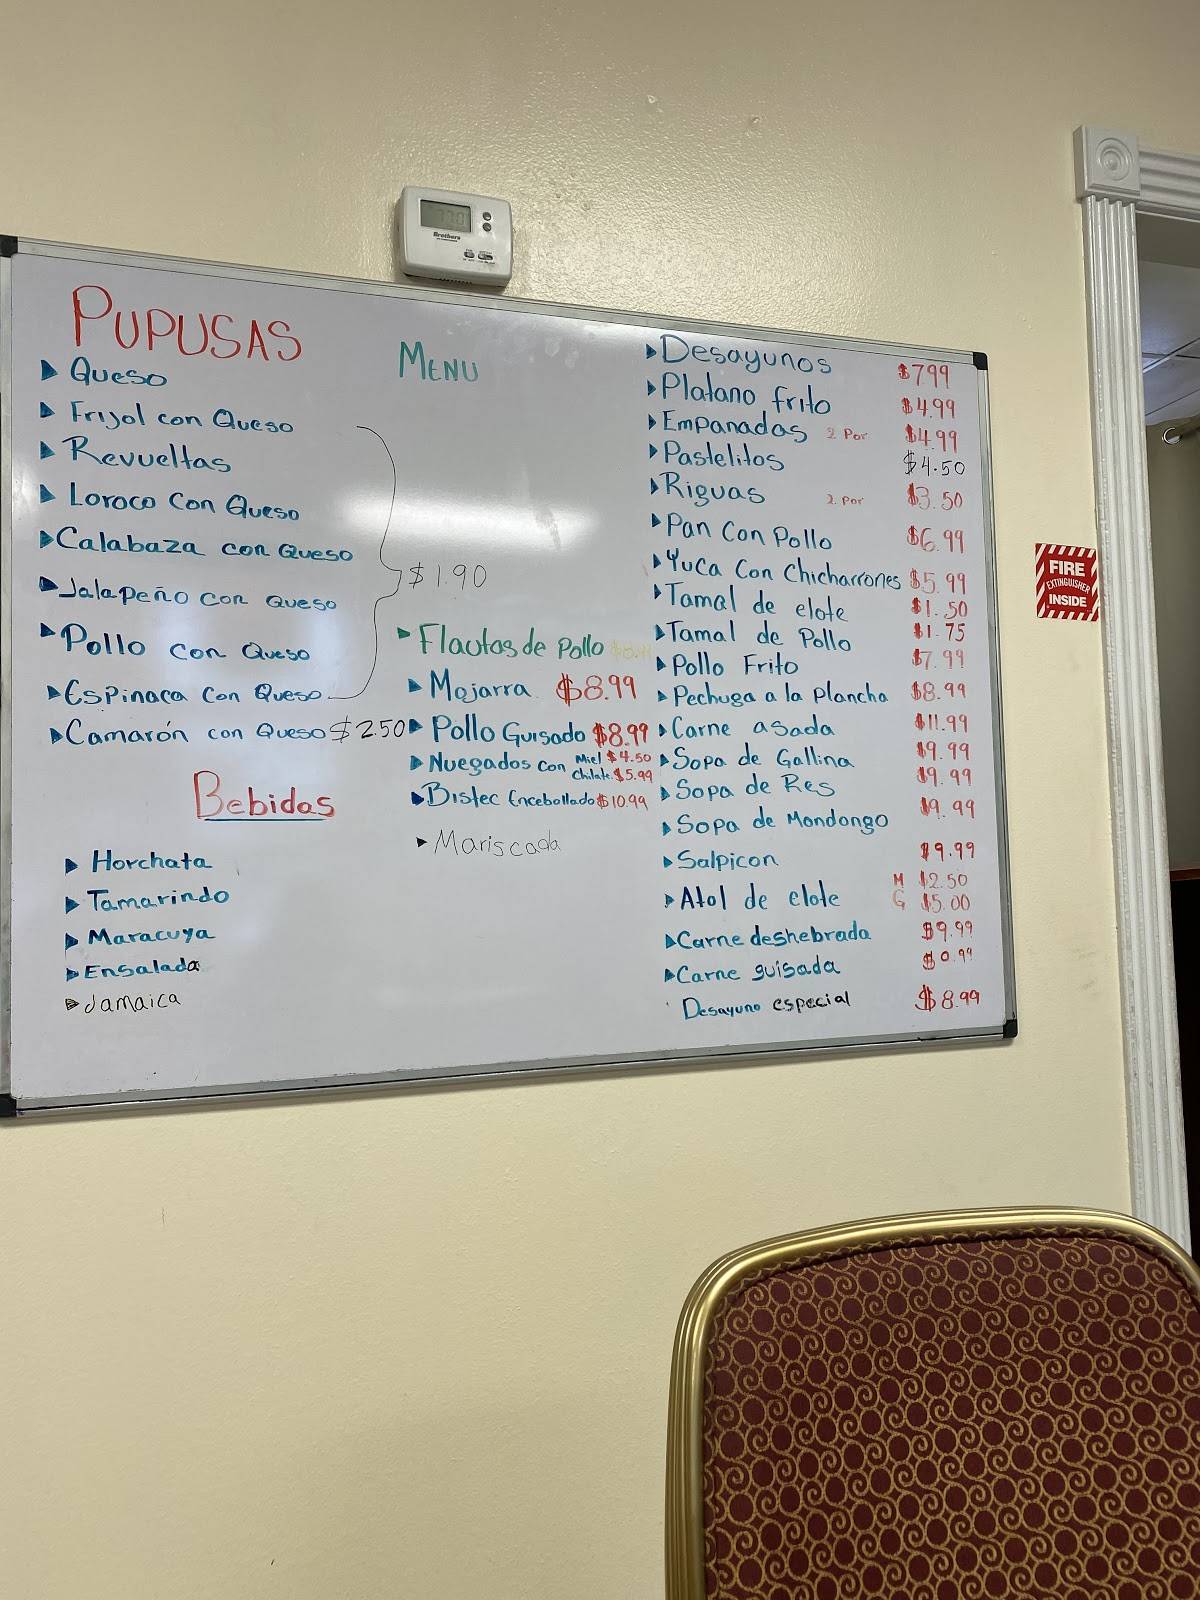 77.0
Brothers
PUPUSAS
Queso
Frijol con Queso
Revueltas
Loroco Con Queso
Calabaza con Queso
Jalapeño con Queso
Pollo con Queso
Espinaca con Queso
$1.90
Camarón con Queso $2.50
Bebidas
Horchata
Tamarindo
Maracuya
Ensalada
Jamaica
MENU
Flautas de Pollo
Mojarra $8.99
Pollo Guisado $8.99
Nuegados con Miel $4.50
Chilate $5.99
Bistec Encebollado $10.99
Mariscada
Desayunos $799
Platano frito $4.99
Empanadas 2 Por $4.99
Pastelitos $4.50
Riguas 2 Por $3.50
Pan Con Pollo $6.99
Yuca Con Chicharrones $5.99
Tamal de elote $1.50
Tamal de Pollo $1.75
Pollo Frito $7.99
Pechuga a la plancha $8.99
Carne asada $11.99
Sopa de Gallina $9.99
Sopa de Res $9.99
Sopa de Mondongo $9.99
Salpicon $9.99
Atol de elote M $2.50
G $5.00
Carne deshebrada $9.99
Carne guisada
Desayuno especial $8.99
FIRE
EXTINGUISHER
INSIDE